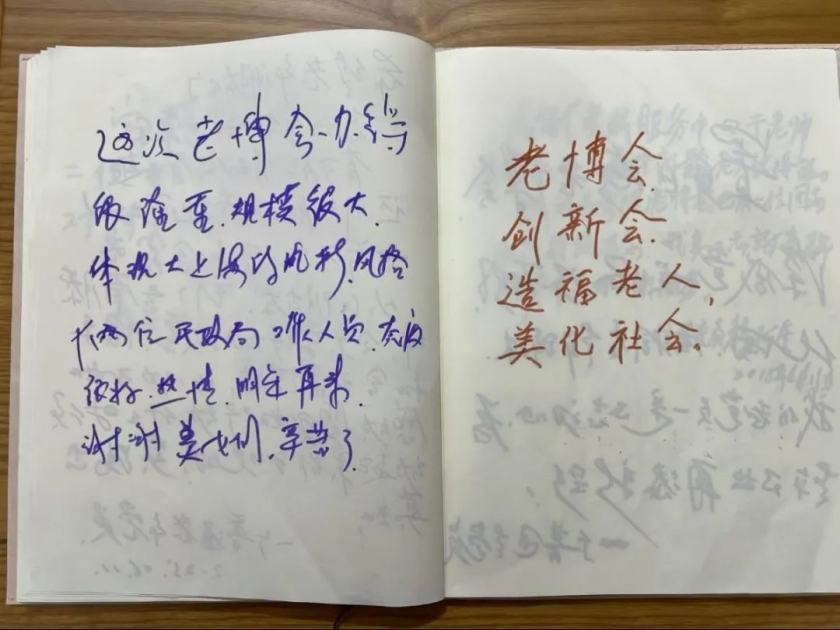 这次老博会办得
很隆重.规模很大.
体现大上海的风彩.风格
两位民政局工作人员.态度
很好.热情.明年再来.
谢谢美女们.辛苦了.
老博会.
创新会.
造福老人,
美化社会.